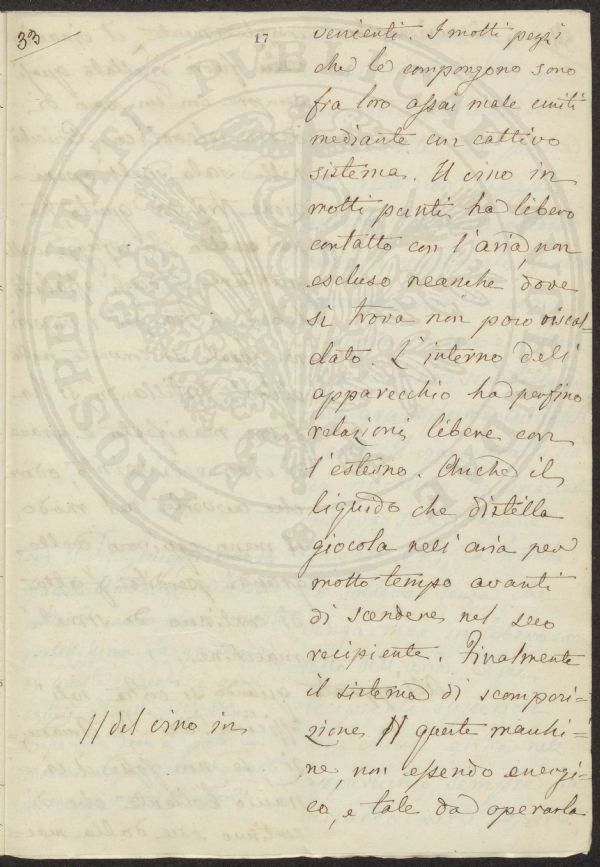 33
17
venienti. I molti pezzi
che le compongono sono
fra loro assai male uniti
mediante un cattivo
sistema. Il vino in
molti punti ha libero
contatto con l'aria, non
escluso neanche dove
si trova non poco riscal=
dato. L'interno dell'
apparecchio ha perfino
relazioni libere con
l'esterno. Anche il
liquido che distilla
giocola nell'aria per
molto tempo avanti
di scendere nel seco
recipiente. Finalmente
il sistema di scompozi=
//del vino in
zione // queste macchi=
ne, non essendo energi=
co, e tale da operarla
PROSPERITATI PVBLICAE